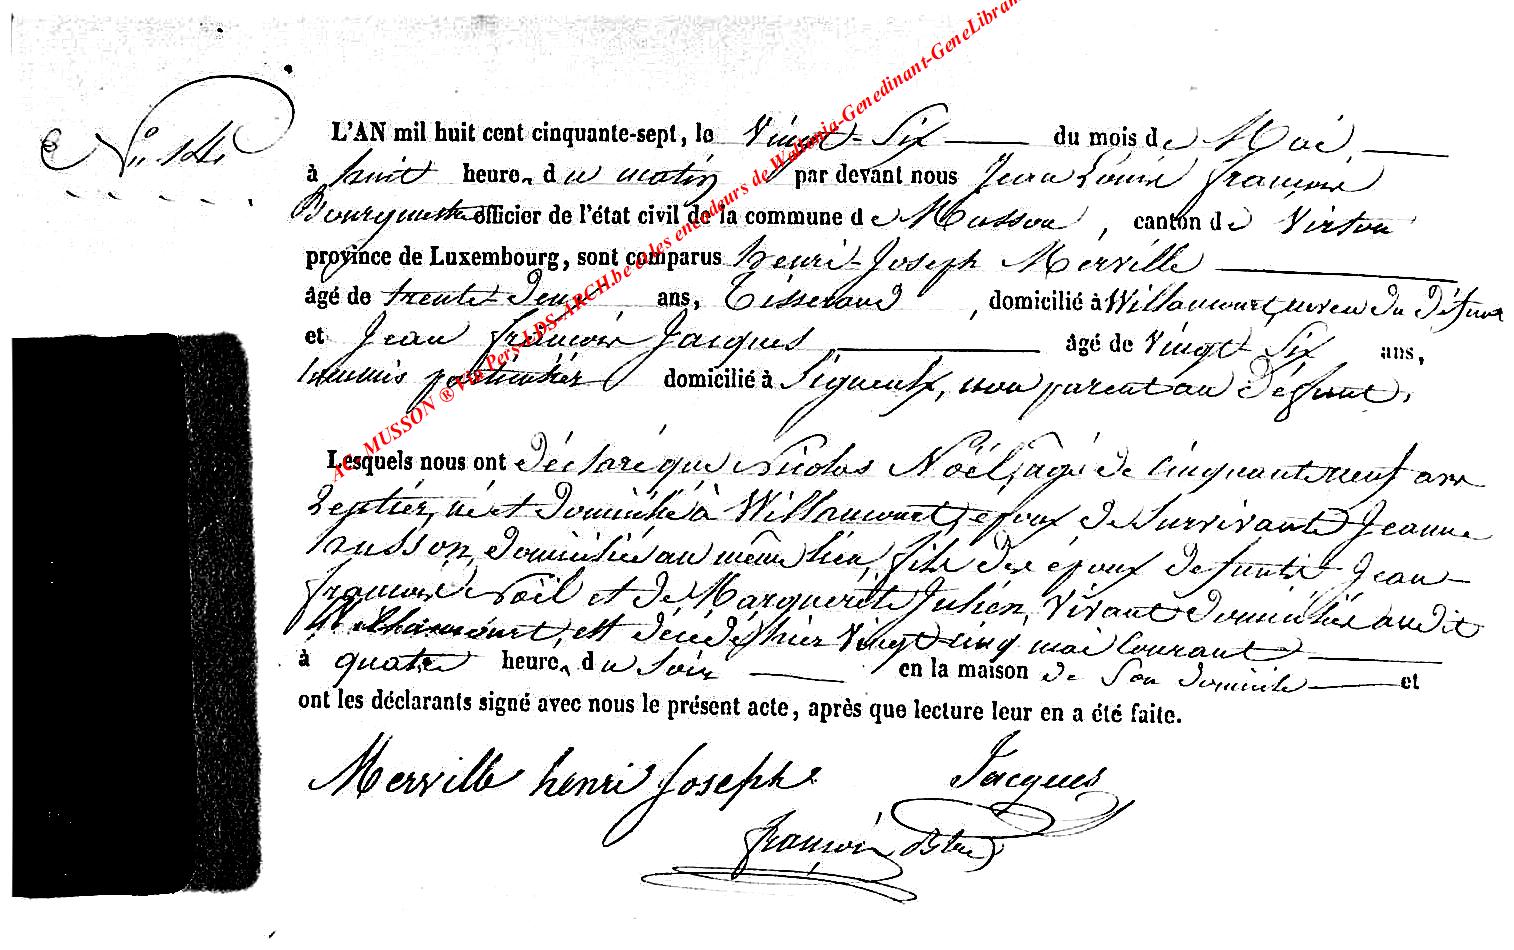 N° 14.
L'AN mil huit cent cinquante-sept, le Vingt-Six du mois de Mai,
à huit heures du matin par devant nous Jean Louis François
officier de l'état civil de la commune de Musson, canton de Virton
province de Luxembourg, sont comparus henri-Joseph Merville
âgé de trente-deux ans, Tisserand, domicilié à Willancourt, neveu du défunt
et Jean François Jacques âgé de Vingt-Six ans,
particulier domicilié à Signeulx, non parent au défunt.
Lesquels nous ont déclaré que Nicolas Noël, âgé de cinquante neuf ans
Rentier, né et domicilié à Willancourt, époux de survivante Jeanne
husson, domiciliée au même lieu, fils des époux defunts Jean-
françois Noël et de Marguerite Julien, vivant domiciliés audit
Willancourt, est décédé hier Vingt-cinq mai courant
à quatre heures du soir en la maison de son domicile et
ont les déclarants signé avec nous le présent acte, après que lecture leur en a été faite.
Merville henri Joseph Jacques
françois
AC. MUSSON ® Via Pers LDS-ARCH.be et les encodeurs de Wallonia-Genedinant-GeneLibran